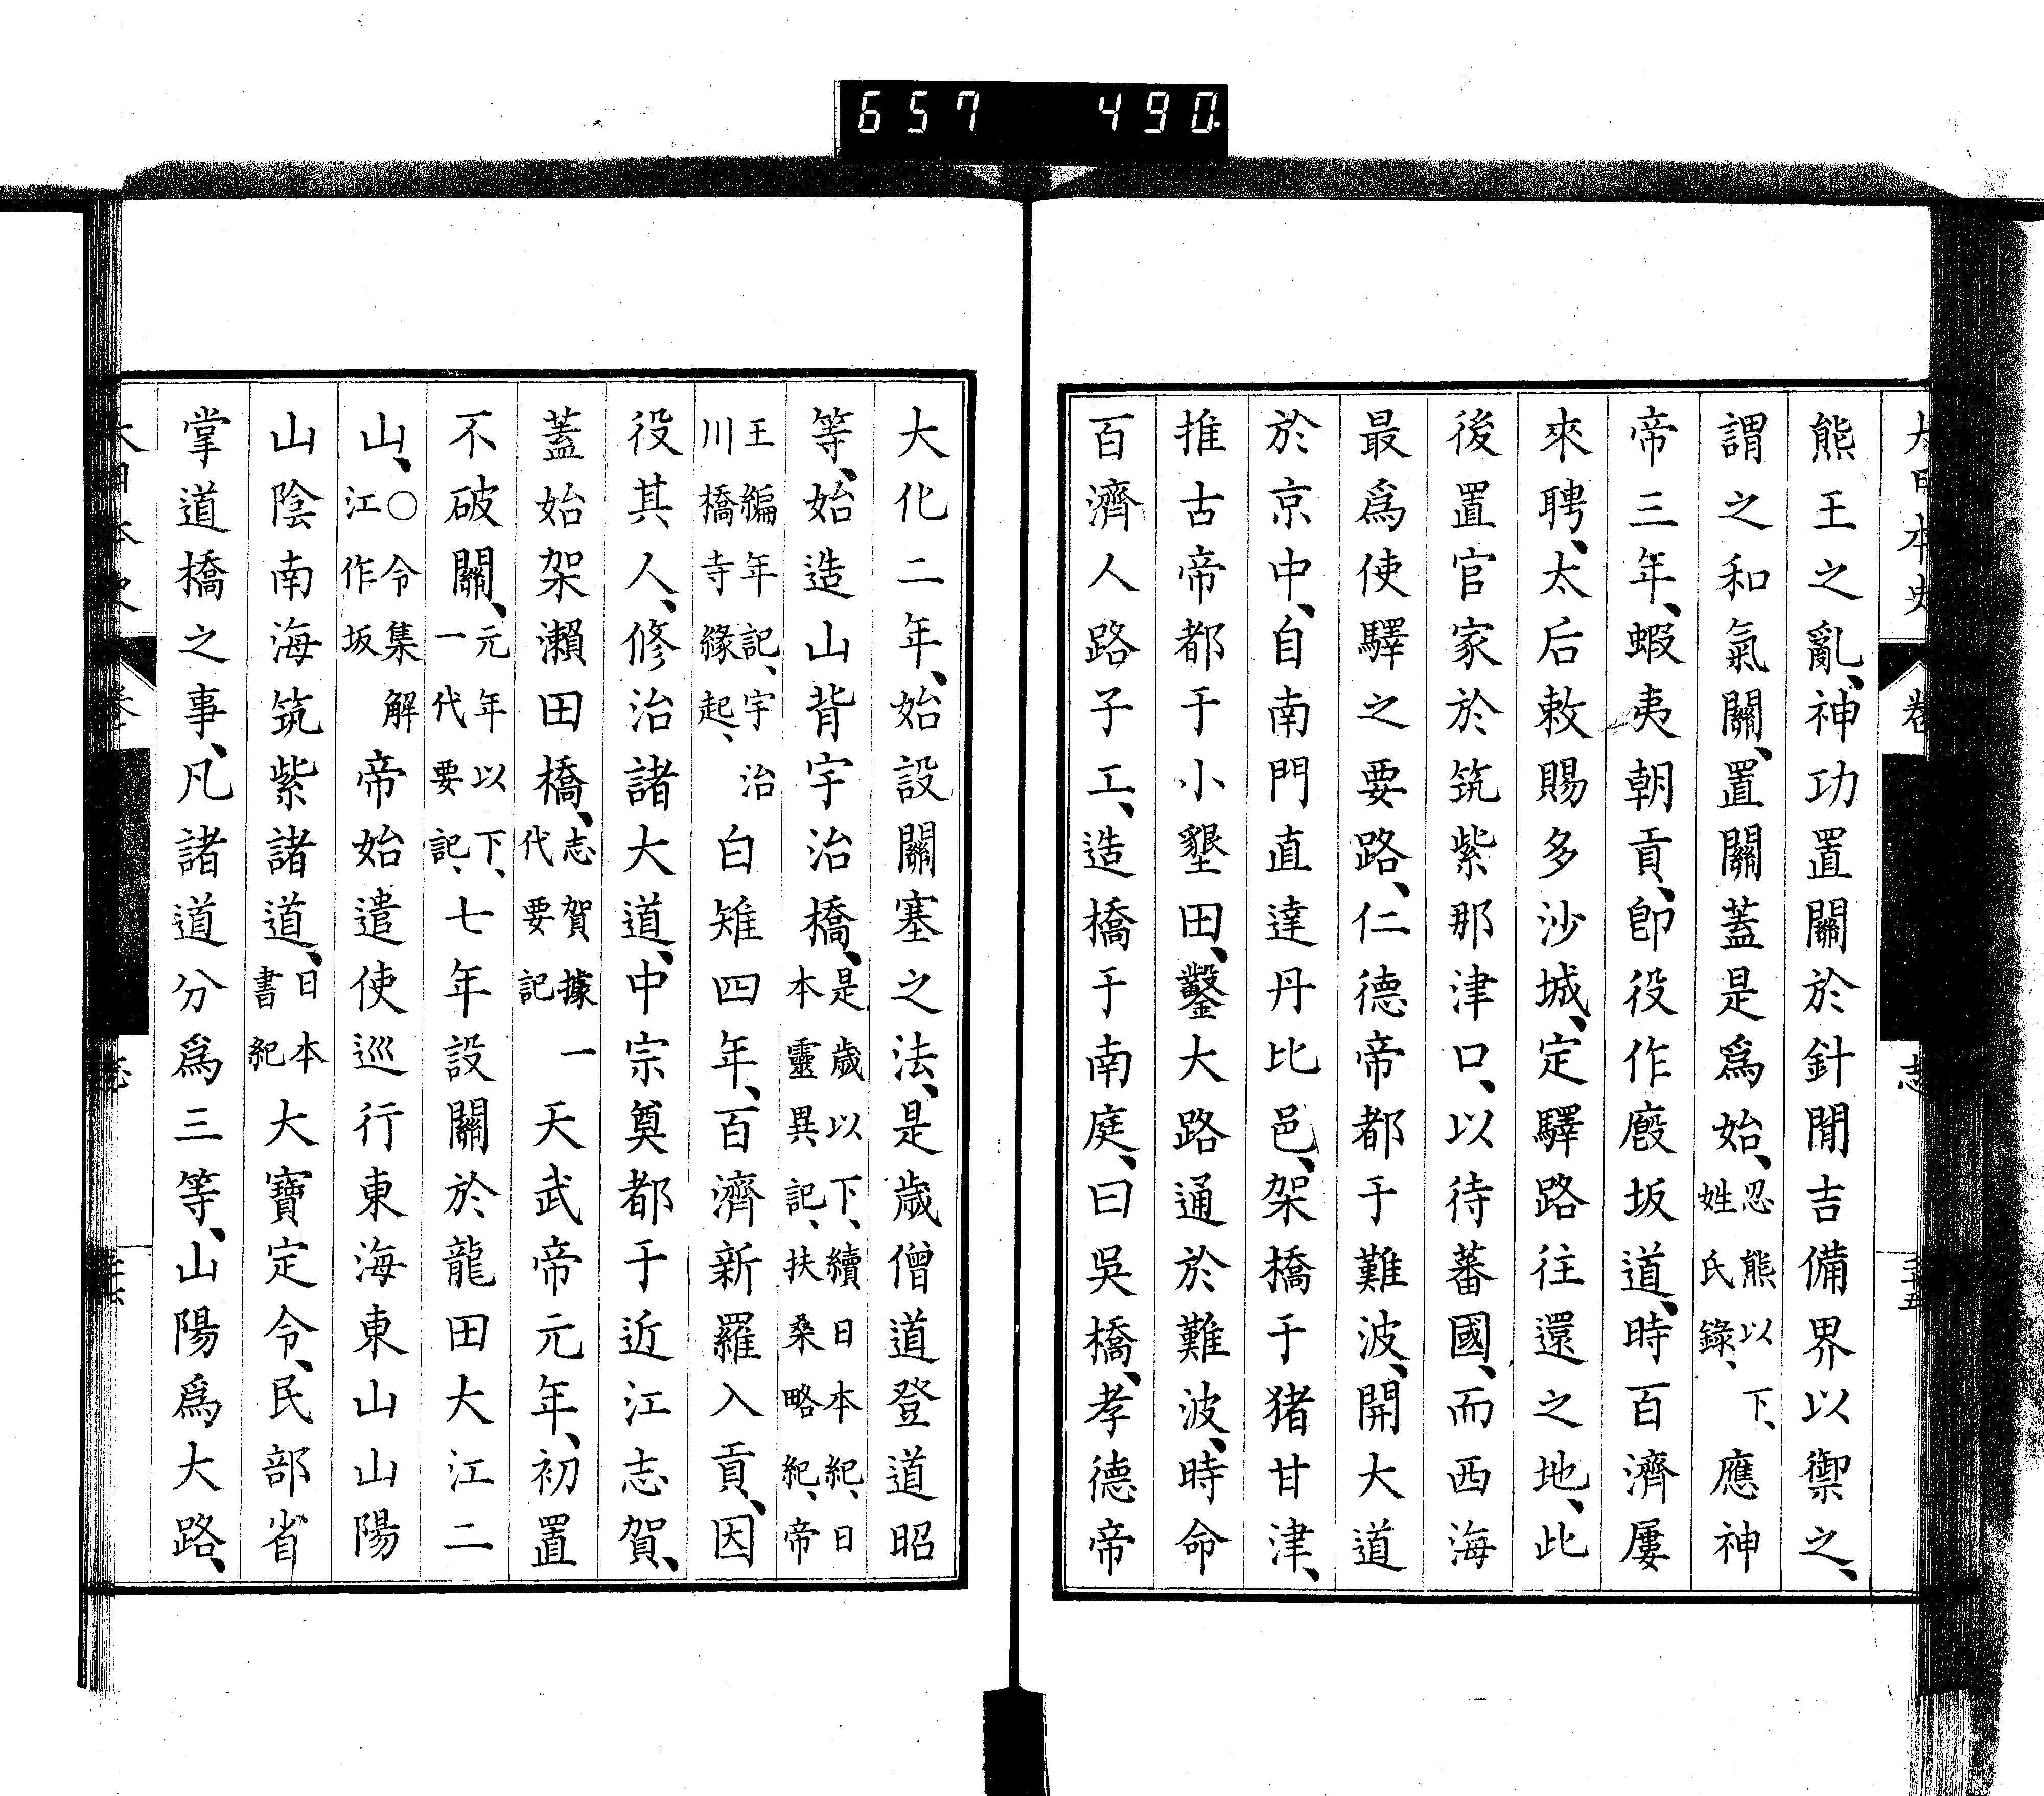 657 490
大日本史 卷 志 三十五
熊王之亂、神功置關於針閒吉備界以禦之、
謂之和氣關、置關蓋是爲始、忍熊以下、姓氏錄、應神
帝三年、蝦夷朝貢、卽役作廐坂道、時百濟屢
來聘、太后敕賜多沙城、定驛路往還之地、此
後置官家於筑紫那津口、以待蕃國、而西海
最爲使驛之要路、仁德帝都于難波、開大道
於京中、自南門直達丹比邑、架橋于猪甘津、
推古帝都于小墾田、鑿大路通於難波、時命
百濟人路子工、造橋于南庭、曰吳橋、孝德帝
大化二年、始設關塞之法、是歲僧道登道昭
等、始造山背宇治橋、是歲以下、續日本紀、日本靈異記、扶桑略紀、帝
王編年記、宇治川橋寺緣起、白雉四年、百濟新羅入貢、因
役其人、修治諸大道、中宗奠都于近江志賀、
蓋始架瀨田橋、志賀據一代要記 天武帝元年、初置
不破關、元年以下、一代要記、七年設關於龍田大江二
山、〇令集解江作坂 帝始遣使巡行東海東山山陽
山陰南海筑紫諸道、日本書紀 大寶定令、民部省
掌道橋之事、凡諸道分爲三等、山陽爲大路、
大日本史 卷 志